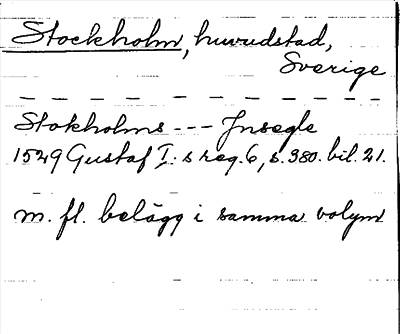 Stockholm, huvudstad,
Sverige
Stokholms --- Jnsegle
1529 Gustaf I:s reg. 6, s. 380. bil. 21.
m. fl. belägg i samma volym